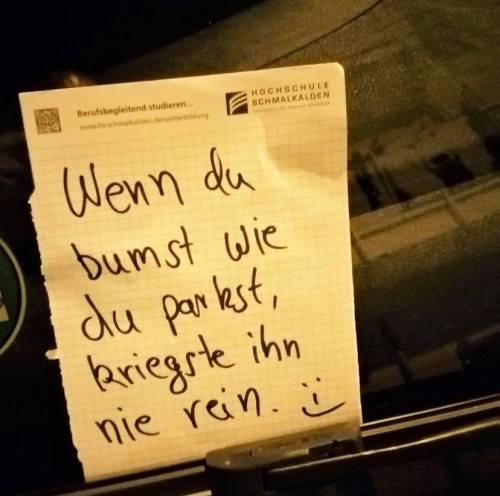 Berufsbegleitend studieren...
www.hs-schmalkalden.de/weiterbildung
HOCHSCHULE
SCHMALKALDEN
UNIVERSITY OF APPLIED SCIENCES
Wenn du
bumst wie
du parkst,
kriegste ihn
nie rein. :)